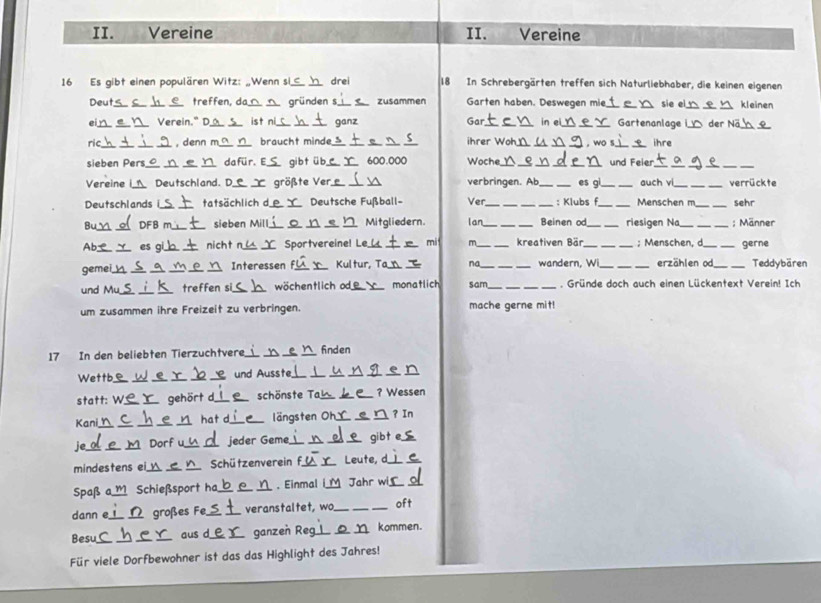 II. Vereine
16 Es gibt einen populären Witz: „Wenn sich drei
Deutsche treffen, dann gründen sie zusammen
einen Verein." Das ist nicht ganz
richtig, denn man braucht mindestens
sieben Personen dafür. Es gibt über 600.000
Vereine in Deutschland. Der größte Verein
Deutschlands ist tatsächlich der Deutsche Fußball-
Bund DFB mit sieben Millionen Mitgliedern.
Aber es gibt nicht nur Sportvereine! Leute mit
gemeinsamen Interessen für Kultur, Tanz
und Musik treffen sich wöchentlich oder monatlich
um zusammen ihre Freizeit zu verbringen.
17 In den beliebten Tierzuchtvereinen finden
Wettbewerbe und Ausstellungen
statt: Wer gehört die schönste Taube? Wessen
Kaninchen hat die längsten Ohren? In
jedem Dorf und jeder Gemeinde gibt es
mindestens einen Schützenverein für Leute, die
Spaß am Schießsport haben. Einmal im Jahr wird
dann ein großes Fest veranstaltet, wo___ ___ ___ oft
Besucher aus der ganzen Region kommen.
Für viele Dorfbewohner ist das das Highlight des Jahres!
II. Vereine
18 In Schrebergärten treffen sich Naturliebhaber, die keinen eigenen
Garten haben. Deswegen mieten sie einen kleinen
Garten in einer Gartenanlage in der Nähe
ihrer Wohnung, wo sie ihre
Wochenenden und Feiertage___ ___
verbringen. Ab___ ___ es gl___ ___ auch vi___ ___ verrückte
Ver___ ___ ___ ___: Klubs f___ ___ Menschen m___ ___ sehr
lan___ ___ ___ Beinen od___ ___ riesigen Na___ ___ ___; Männer
m___ ___ kreativen Bär___ ___ ___; Menschen, d___ ___ gerne
na___ ___ ___ wandern, Wi___ ___ ___ erzählen od___ ___ Teddybären
sam___ ___ ___ ___. Gründe doch auch einen Lückentext Verein! Ich
mache gerne mit!